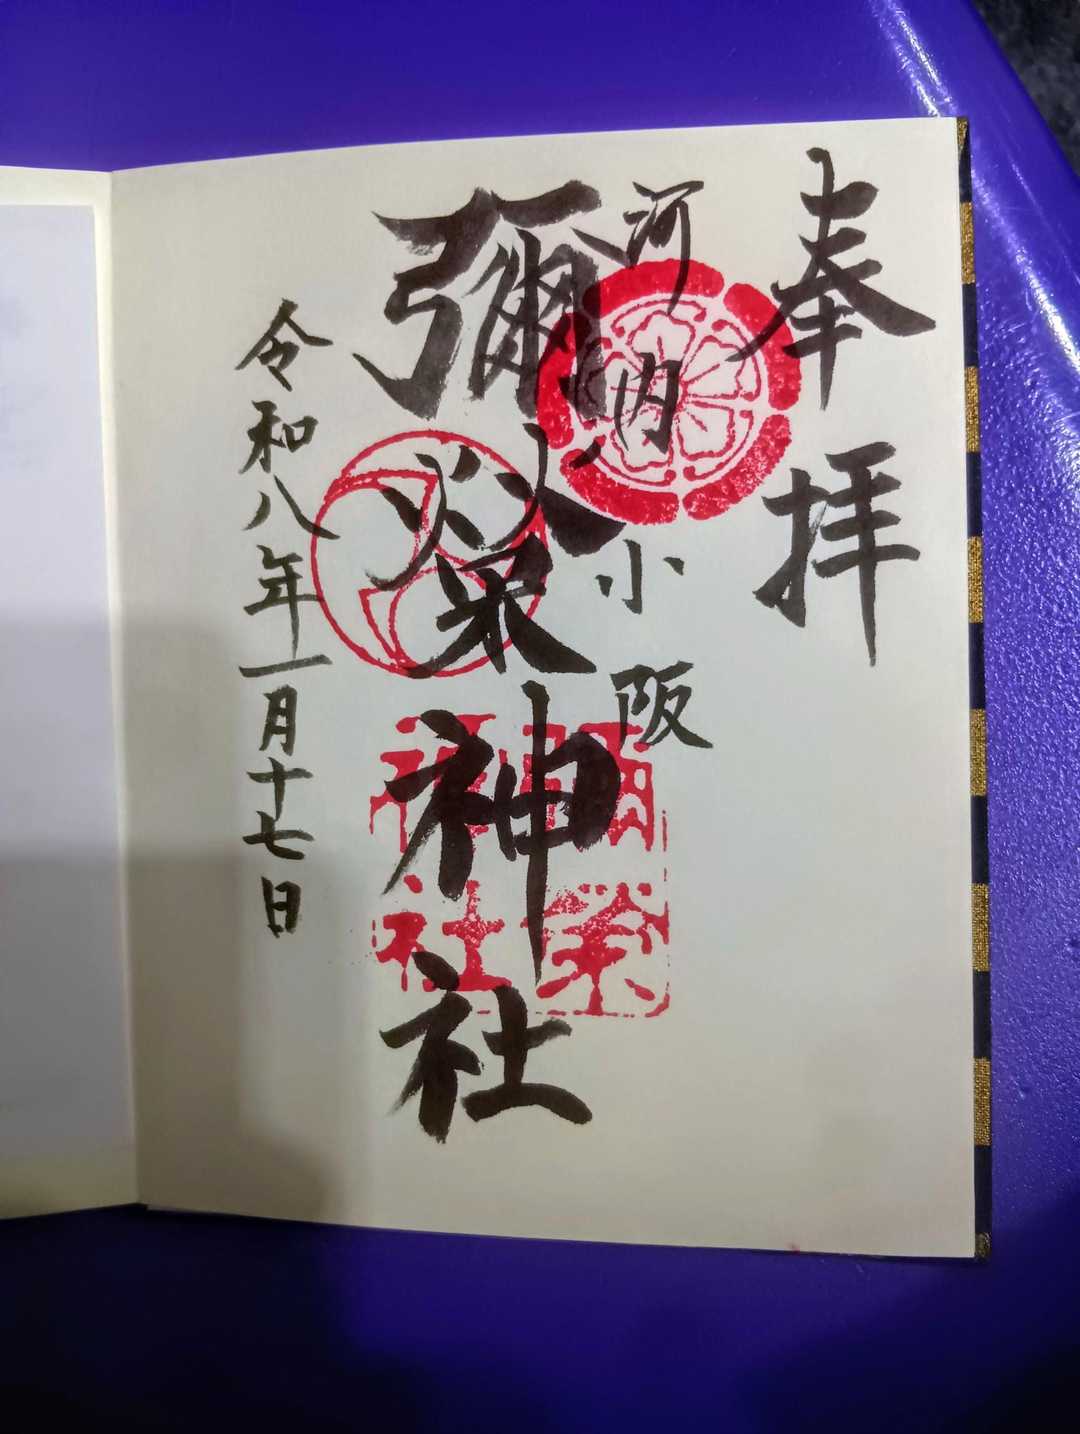 奉拝
河内小阪
彌榮神社
彌榮神社
令和八年一月十七日